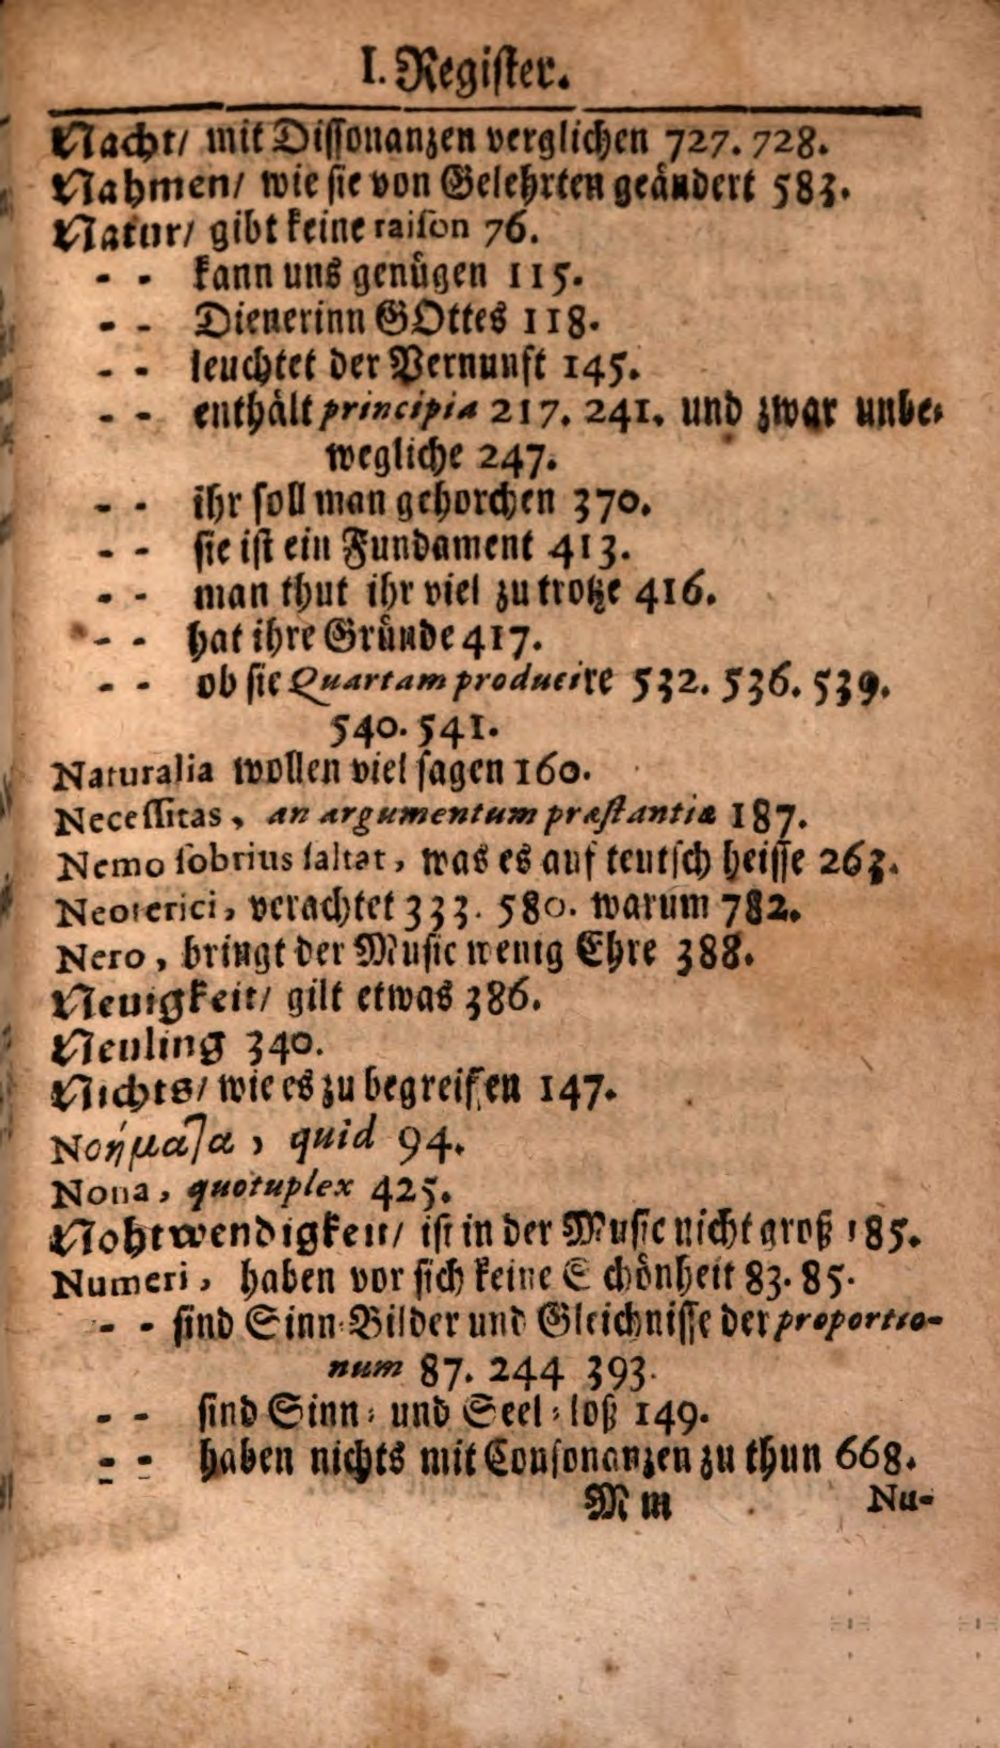 I. Register.
Nacht/ mit Dissonanzen verglichen 727. 728.
Nahmen/ wie sie von Gelehrten geändert 583.
Natur/ gibt keine raison 76.
- - kann uns genügen 115.
- - Dienerinn GOttes 118.
- - leuchtet der Vernunft 145.
- - enthält principia 217. 241. und zwar unbe-
wegliche 247.
- - ihr soll man gehorchen 370.
- - sie ist ein Fundament 413.
- - man thut ihr viel zu trotze 416.
- - hat ihre Gründe 417.
- - ob sie Quartam producire 532. 536. 539.
540. 541.
Naturalia wollen viel sagen 160.
Necessitas, an argumentum præstantiæ 187.
Nemo sobrius saltat, was es auf teutsch heisse 263.
Neoterici, verachtet 333. 580. warum 782.
Nero, bringt der Music wenig Ehre 388.
Neuigkeit/ gilt etwas 386.
Neuling 340.
Nichts/ wie es zu begreiffen 147.
Νοήματα, quid 94.
Nona, quotuplex 425.
Nohtwendigkeit/ ist in der Music nicht groß 185.
Numeri, haben vor sich keine Schönheit 83. 85.
- - sind Sinn-Bilder und Gleichnisse der proportio-
num 87. 244 393.
- - sind Sinn- und Seel-loß 149.
- - haben nichts mit Consonanzen zu thun 668.
M m Nu-